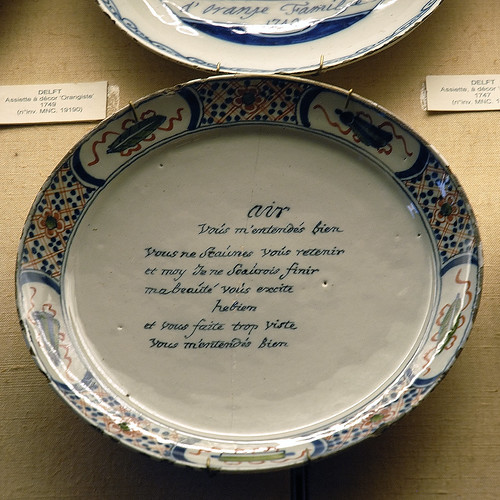 d'oranje Famill
1749
DELFT
Assiette à décor "Orangiste"
1749
(n°inv. MNC. 19190)
DELFT
Assiette, à décor
1747
(n°inv. MNC.
air
Vous m'entendés bien
Vous ne Scaunes vous retenir
et moy Je ne Scaurois finir
ma beauté vous excite
hebien
et vous faite trop viste
vous m'entendés bien